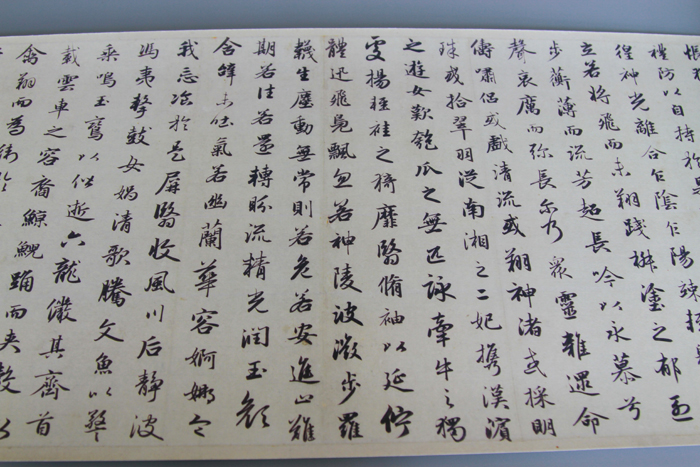 悵
禮防以自持於
徨神光離合乍陰乍陽竦
立若將飛而未翔踐椒塗之郁烈
步蘅薄而流芳超長吟以永慕兮
聲哀厲而弥長尔乃眾靈雜遝命
儔嘯侶或戲清流或翔神渚或採明
珠或拾翠羽從南湘之二妃攜漢濱
之遊女歎匏瓜之無匹詠牽牛之獨
處揚輕袿之猗靡翳脩袖以延佇
體迅飛鳧飄忽若神陵波微步羅
襪生塵動無常則若危若安進止難
期若往若還轉眄流精光潤玉顏
含辭未吐氣若幽蘭華容婀娜令
我忘飡於是屏翳收風川后靜波
馮夷擊鼓女媧清歌騰文魚以警
乘鳴玉鸞以偕逝六龍儼其齊首
載雲車之容裔鯨鯢踊而夾轂水
禽翔而為衛於